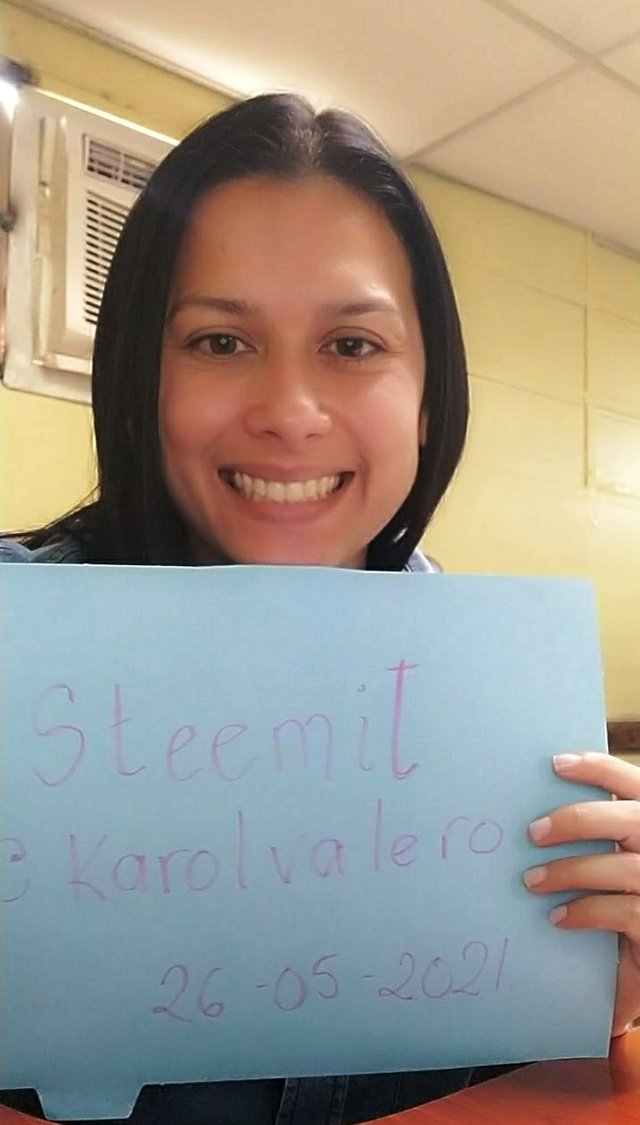 Steemit
@Karolvalero
26-05-2021